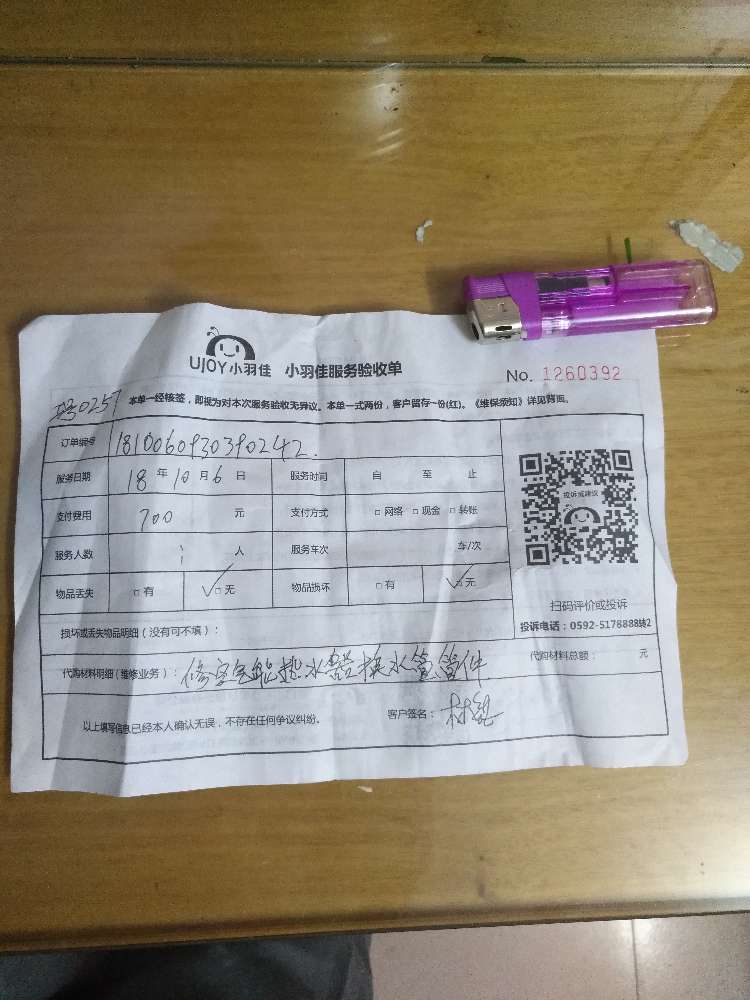 UJOY小羽佳 小羽佳服务验收单
No. 1260392
0257 本单一经核签，即视为对本次服务验收无异议。本单一式两份，客户留存一份(红)。《维保须知》详见背面。
订单编号 1810060930390242
服务日期 18 年 10 月 6 日 服务时间 自 至 止
支付费用 700 元 支付方式 □ 网络 □ 现金 □ 转账
服务人数 人 服务车次 车/次
物品丢失 □ 有 ☑ 无 物品损坏 □ 有 ☑ 无
投诉或建议
扫码评价或投诉
投诉电话：0592-5178888转2
损坏或丢失物品明细（没有可不填）：
代购材料明细（维修业务）： 修空气能热水器换水管、管件 代购材料总额： 元
以上填写信息已经本人确认无误，不存在任何争议纠纷。 客户签名： 林